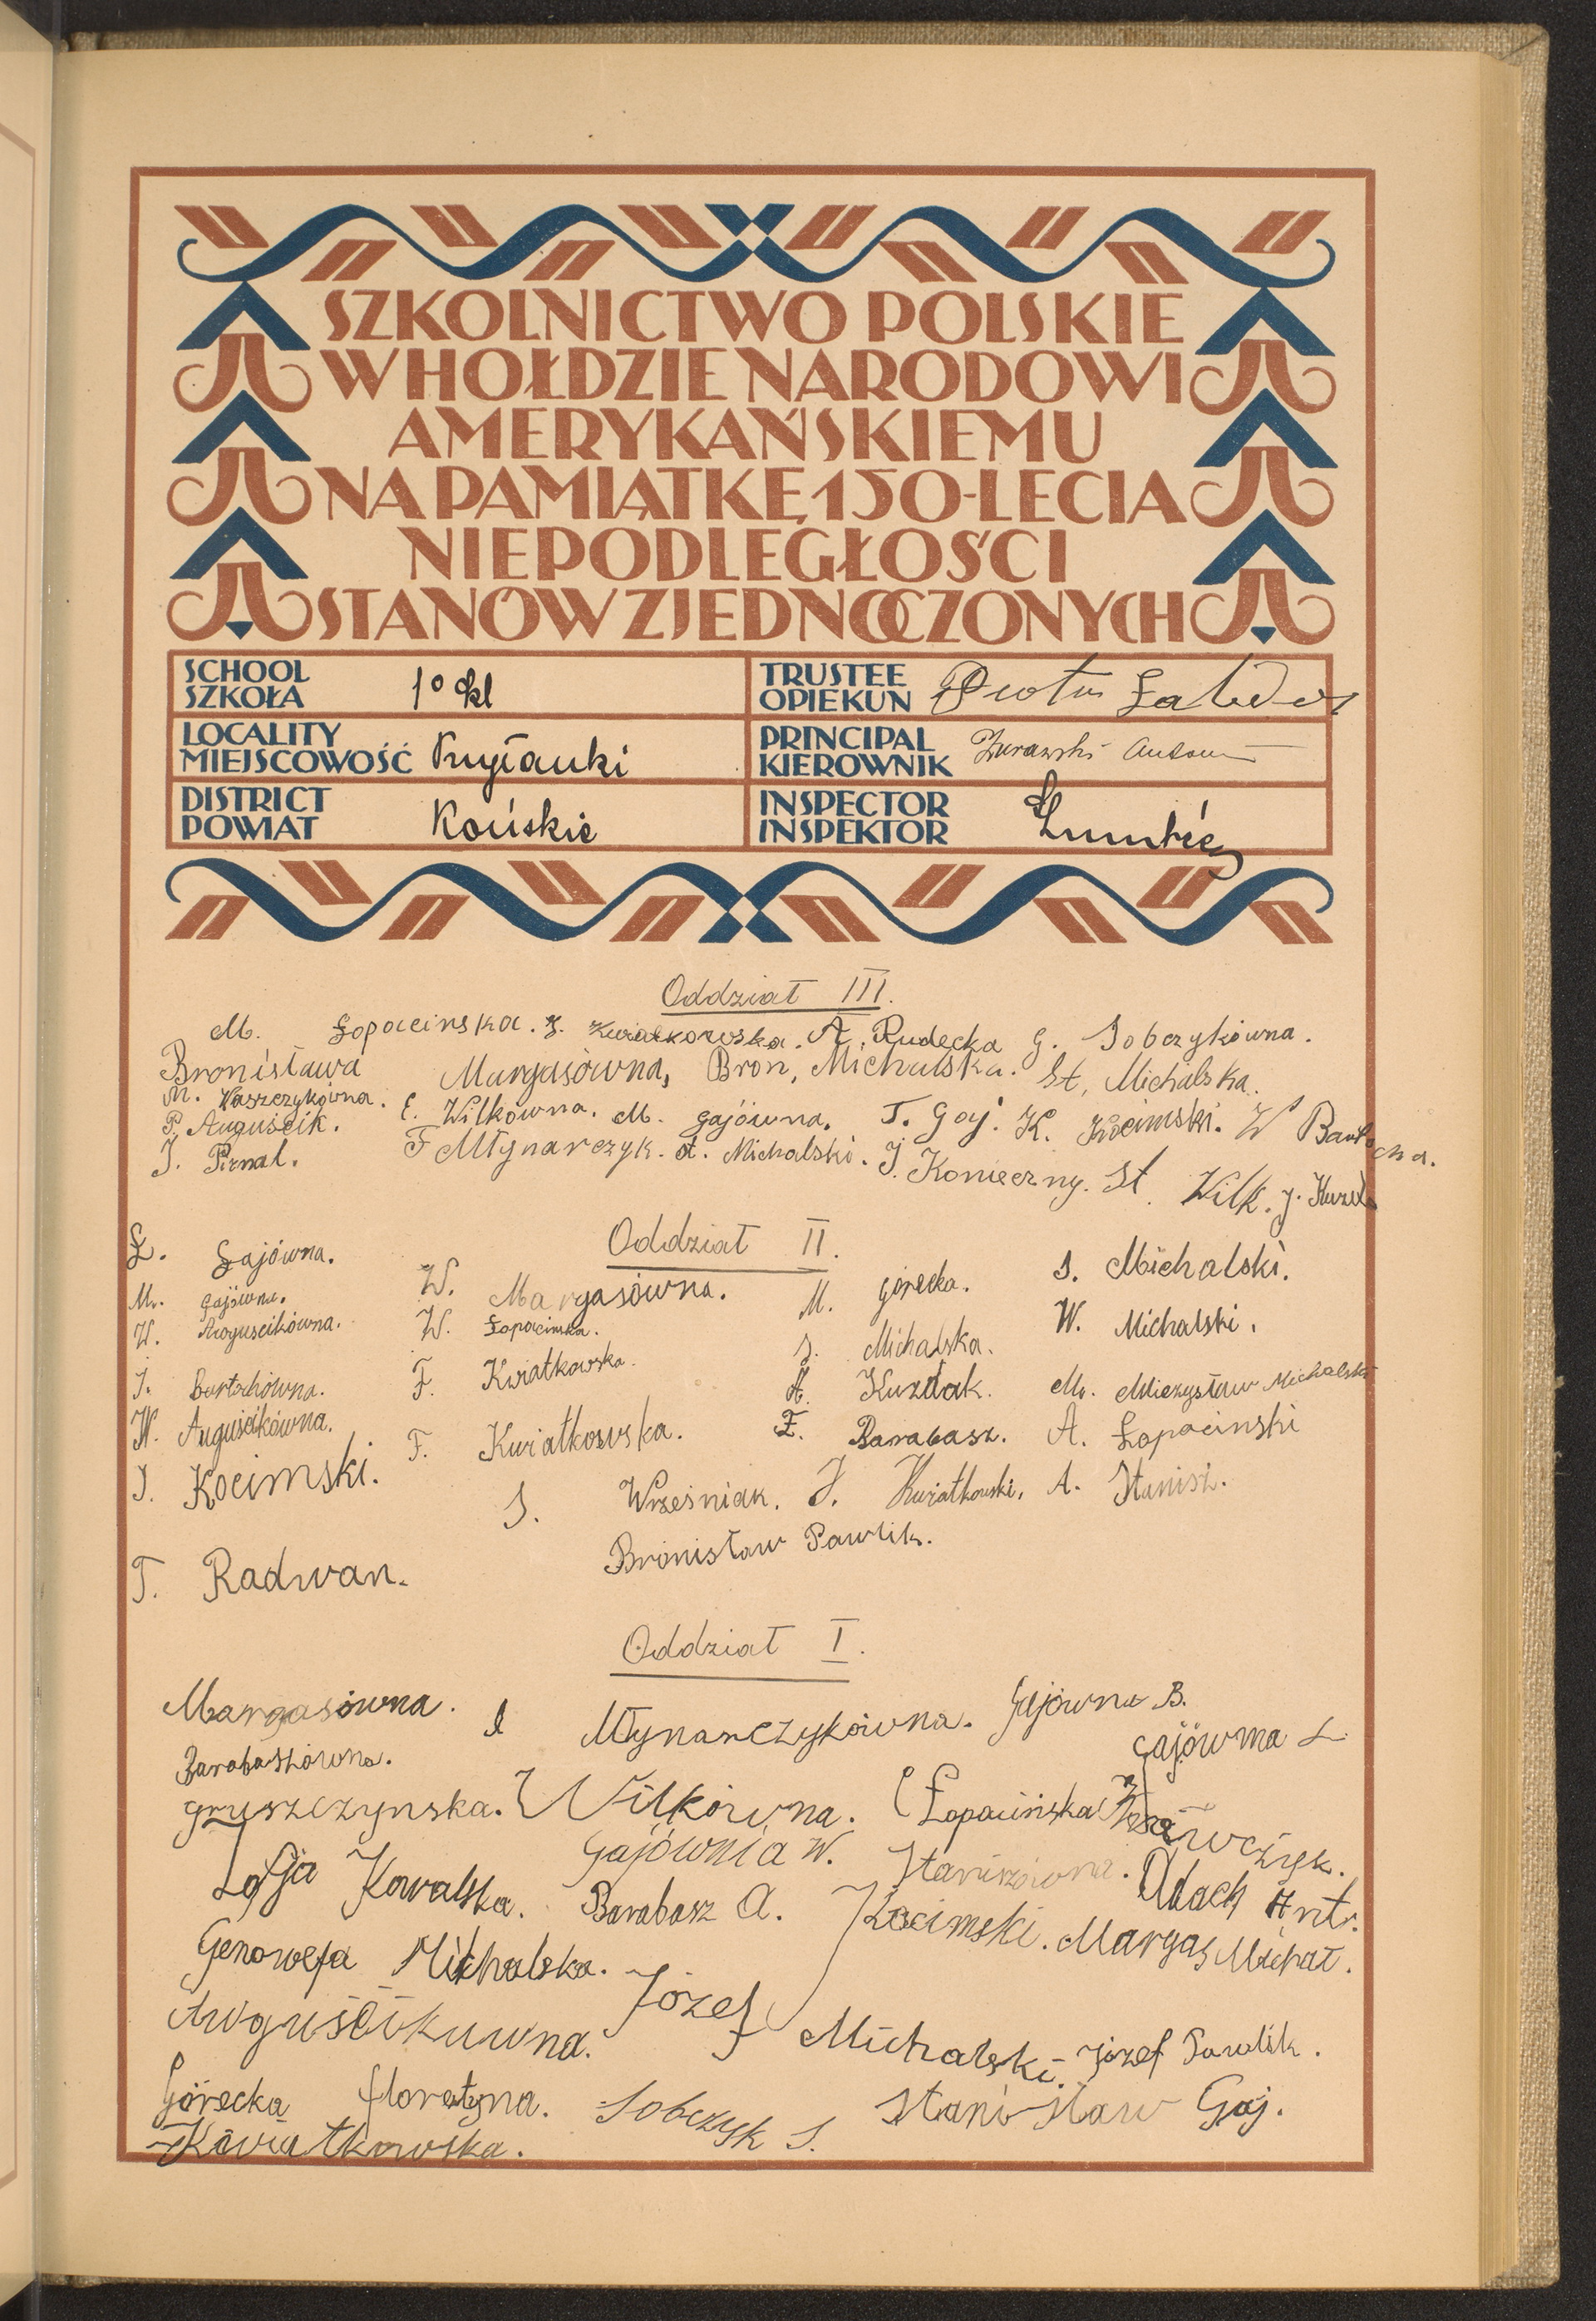 SZKOLNICTWO POLSKIE
W HOŁDZIE NARODOWI
AMERYKAŃSKIEMU
NA PAMIĄTKĘ 150-LECIA
NIEPODLEGŁOŚCI
STANÓW ZJEDNOCZONYCH
SCHOOL
SZKOŁA
1º kl
TRUSTEE
OPIEKUN
Piotr
LOCALITY
MIEJSCOWOŚĆ
PRINCIPAL
KIEROWNIK
Żurawski Antoni
DISTRICT
POWIAT
Końskie
INSPECTOR
INSPEKTOR
Oddział III.
M. Łopacinska. Z. Kwiatkowska. A. Rudecka G. Sobczykówna.
Bronisława Margasówna, Bron, Michalska. St, Michalska.
M. Waszczykówna. E. Wilkówna. M. Gajówna. T. Gaj. K. Kocimski. W
P. Auguścik. F Młynarczyk. A. Michalski. J. Konieczny. St. Wilk. J.
J. Pernal.
Oddział II.
Ł. Łajówna. W. Margasówna. M. Górecka. S. Michalski.
M. Gajówna. W. Łopacinska. S. Michalska. W. Michalski.
W. Auguscikówna. F. Kwiatkowska. A. Kuzdak. M. Mieczysław Michalski
J. Bartochówna. F. Kwiatkowska. F. Barabasz. A. Łopacinski
W. Auguścikówna. S. Wrześniak. J. Kwiatkowski. A. Stanisz.
J. Kocimski. Bronisław Pawlik.
T. Radwan.
Oddział I.
Margasówna. Młynarczykówna. Gajówna B.
Barabaszówna. Gajówna L.
gruszczynska. Wilkówna. Łopacińska
Zofja Kowalska. Gajównia W. Staniszówna. Adach Ant.
Barabasz A. Kocimski. Margas Michał.
Genowefa Michalska. Józef Michalski. Józef Pawlik.
Auguścikuwna.
Górecka florętyna. Sobczyk S. Stanisław Gaj.
Kwiatkowska.